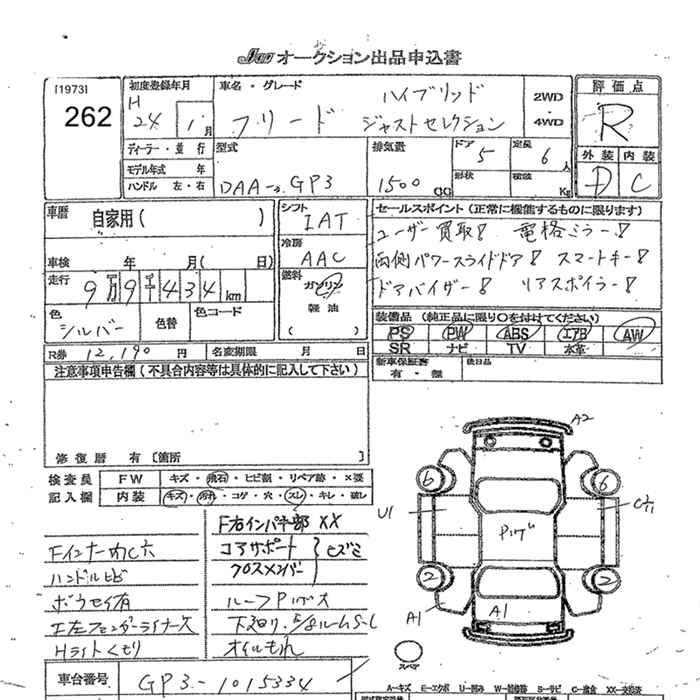 オークション出品申込書
[1973]
262
初度登録年月
H
24 1月
ディーラー・並行
モデル年式 年
ハンドル 左・右
車名・グレード
フリード
ハイブリッド
ジャストセレクション
2WD
4WD
型式
DAA- GP3
排気量
1500
CC
ドア
5
定員
6人
形状
積載
Kg
評価点
R
外装 内装
D C
車歴
自家用( )
車検 年 月( 日)
走行
9万9千434km
色
シルバー
色替
色コード
R券 12,190 円
名変期限 月 日
シフト
IAT
冷房
AAC
燃料
ガソリン
軽油
( )
セールスポイント(正常に機能するものに限ります)
ユーザー買取! 電格ミラー!
両側パワースライドドア! スマートキー!
ドアバイザー! リアスポイラー!
装備品(純正品に限り○を付けてください)
PS PW ABS エアB AW
SR ナビ TV 本革
新車保証書
有・無
後日品
注意事項申告欄(不具合内容等は具体的に記入して下さい)
修復歴 有〔箇所 〕
検査員
記入欄
FW
キズ・飛石・ヒビ割・リペア跡・×要
内装
キズ・汚れ・コゲ・穴・スレ・キレ・破し
F右インパネ部 XX
コアサポート
クロスメンバー
ヒズミ
ルーフPいげ大
オイルもれ
ハンドルヒビ
ボウセイ有
エ左フェンダーライナー欠
Hライトくもり
車台番号
GP3-1015334
A2
6
6
U1
Pいげ
2
2
A1
A1
スペア
A-キズ E-エクボ U-凹み S-サビ C-腐食 XX-交換済